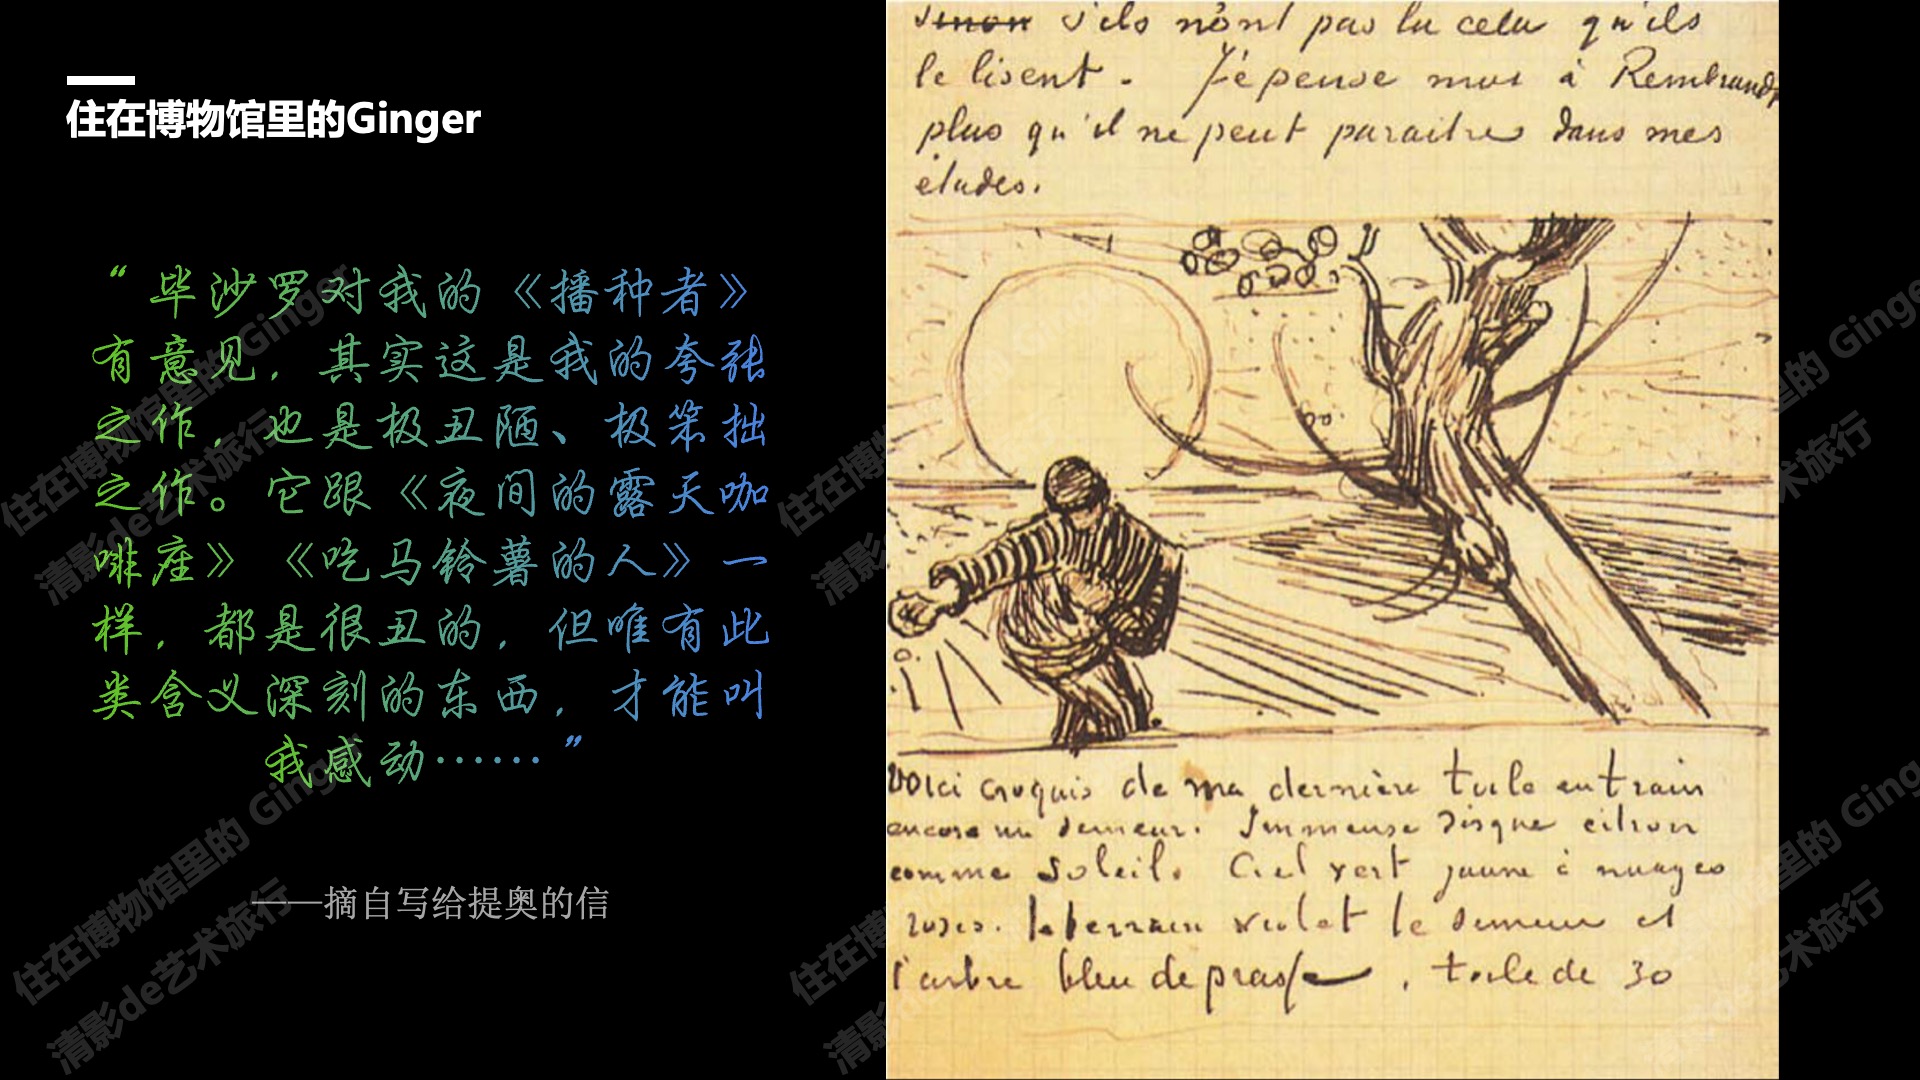 住在博物馆里的Ginger
“毕沙罗对我的《播种者》
有意见，其实这是我的夸张
之作，也是极丑陋、极笨拙
之作。它跟《夜间的露天咖
啡座》《吃马铃薯的人》一
样，都是很丑的，但唯有此
类含义深刻的东西，才能叫
我感动……”
——摘自写给提奥的信
sinon s'ils n'ont pas lu celui qu'ils
le lisent. Je pense moi à Rembrandt
plus qu'il ne peut paraitre dans mes
études.
Voici croquis de ma dernière toile en train
encore un semeur. Immense disque citron
comme soleil. Ciel vert jaune à nuages
roses. le terrain violet le semeur et
l'arbre bleu de prusse. toile de 30
住在博物馆里的 Ginger
清影de艺术旅行